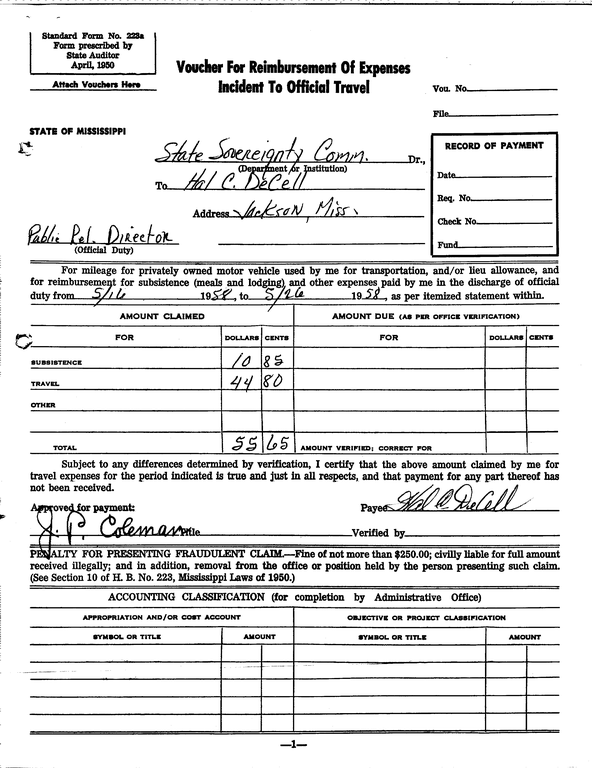 Standard Form No. 223a
Form prescribed by
State Auditor
April, 1950
Attach Vouchers Here
Voucher For Reimbursement Of Expenses
Incident To Official Travel
Vou. No.
File
STATE OF MISSISSIPPI
RECORD OF PAYMENT
Date
Req. No.
Check No.
Fund
State Sovereignty Comm. Dr.,
(Department or Institution)
To Hal C. DeCell
Address Jackson, Miss.
Public Rel. Director
(Official Duty)
For mileage for privately owned motor vehicle used by me for transportation, and/or lieu allowance, and
for reimbursement for subsistence (meals and lodging) and other expenses paid by me in the discharge of official
duty from 5/16 1958, to 5/26 1958, as per itemized statement within.
AMOUNT CLAIMED AMOUNT DUE (AS PER OFFICE VERIFICATION)
FOR DOLLARS CENTS FOR DOLLARS CENTS
SUBSISTENCE 10 85
TRAVEL 44 80
OTHER
TOTAL 55 65 AMOUNT VERIFIED; CORRECT FOR
Subject to any differences determined by verification, I certify that the above amount claimed by me for
travel expenses for the period indicated is true and just in all respects, and that payment for any part thereof has
not been received.
Approved for payment: Payee Hal C. DeCell
J. P. Coleman Title Verified by
PENALTY FOR PRESENTING FRAUDULENT CLAIM.—Fine of not more than $250.00; civilly liable for full amount
received illegally; and in addition, removal from the office or position held by the person presenting such claim.
(See Section 10 of H. B. No. 223, Mississippi Laws of 1950.)
ACCOUNTING CLASSIFICATION (for completion by Administrative Office)
APPROPRIATION AND/OR COST ACCOUNT OBJECTIVE OR PROJECT CLASSIFICATION
SYMBOL OR TITLE AMOUNT SYMBOL OR TITLE AMOUNT
—1—